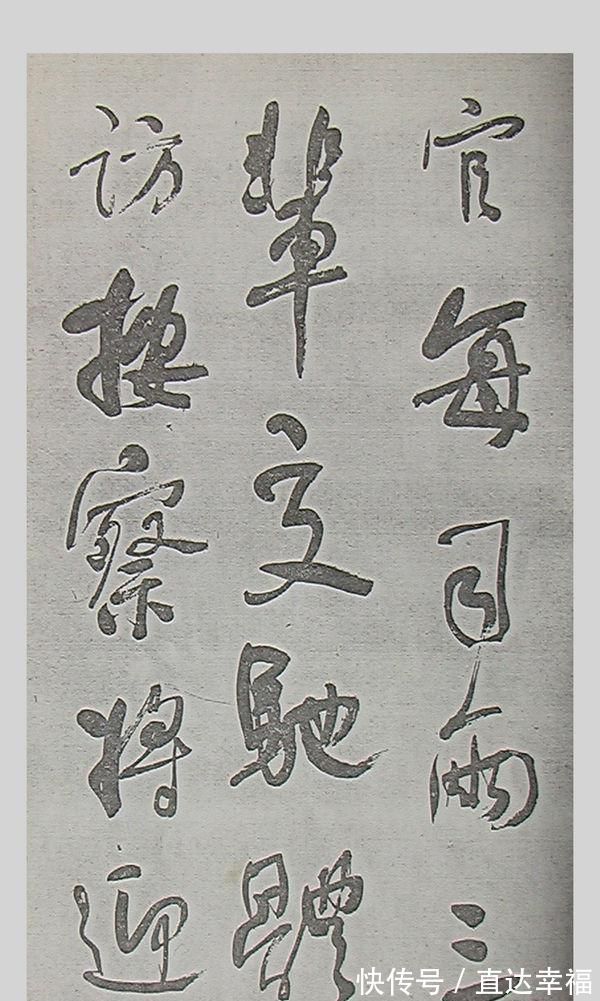 官每司兩三
輩交馳體
訪按察將迎
快传号 / 直达幸福